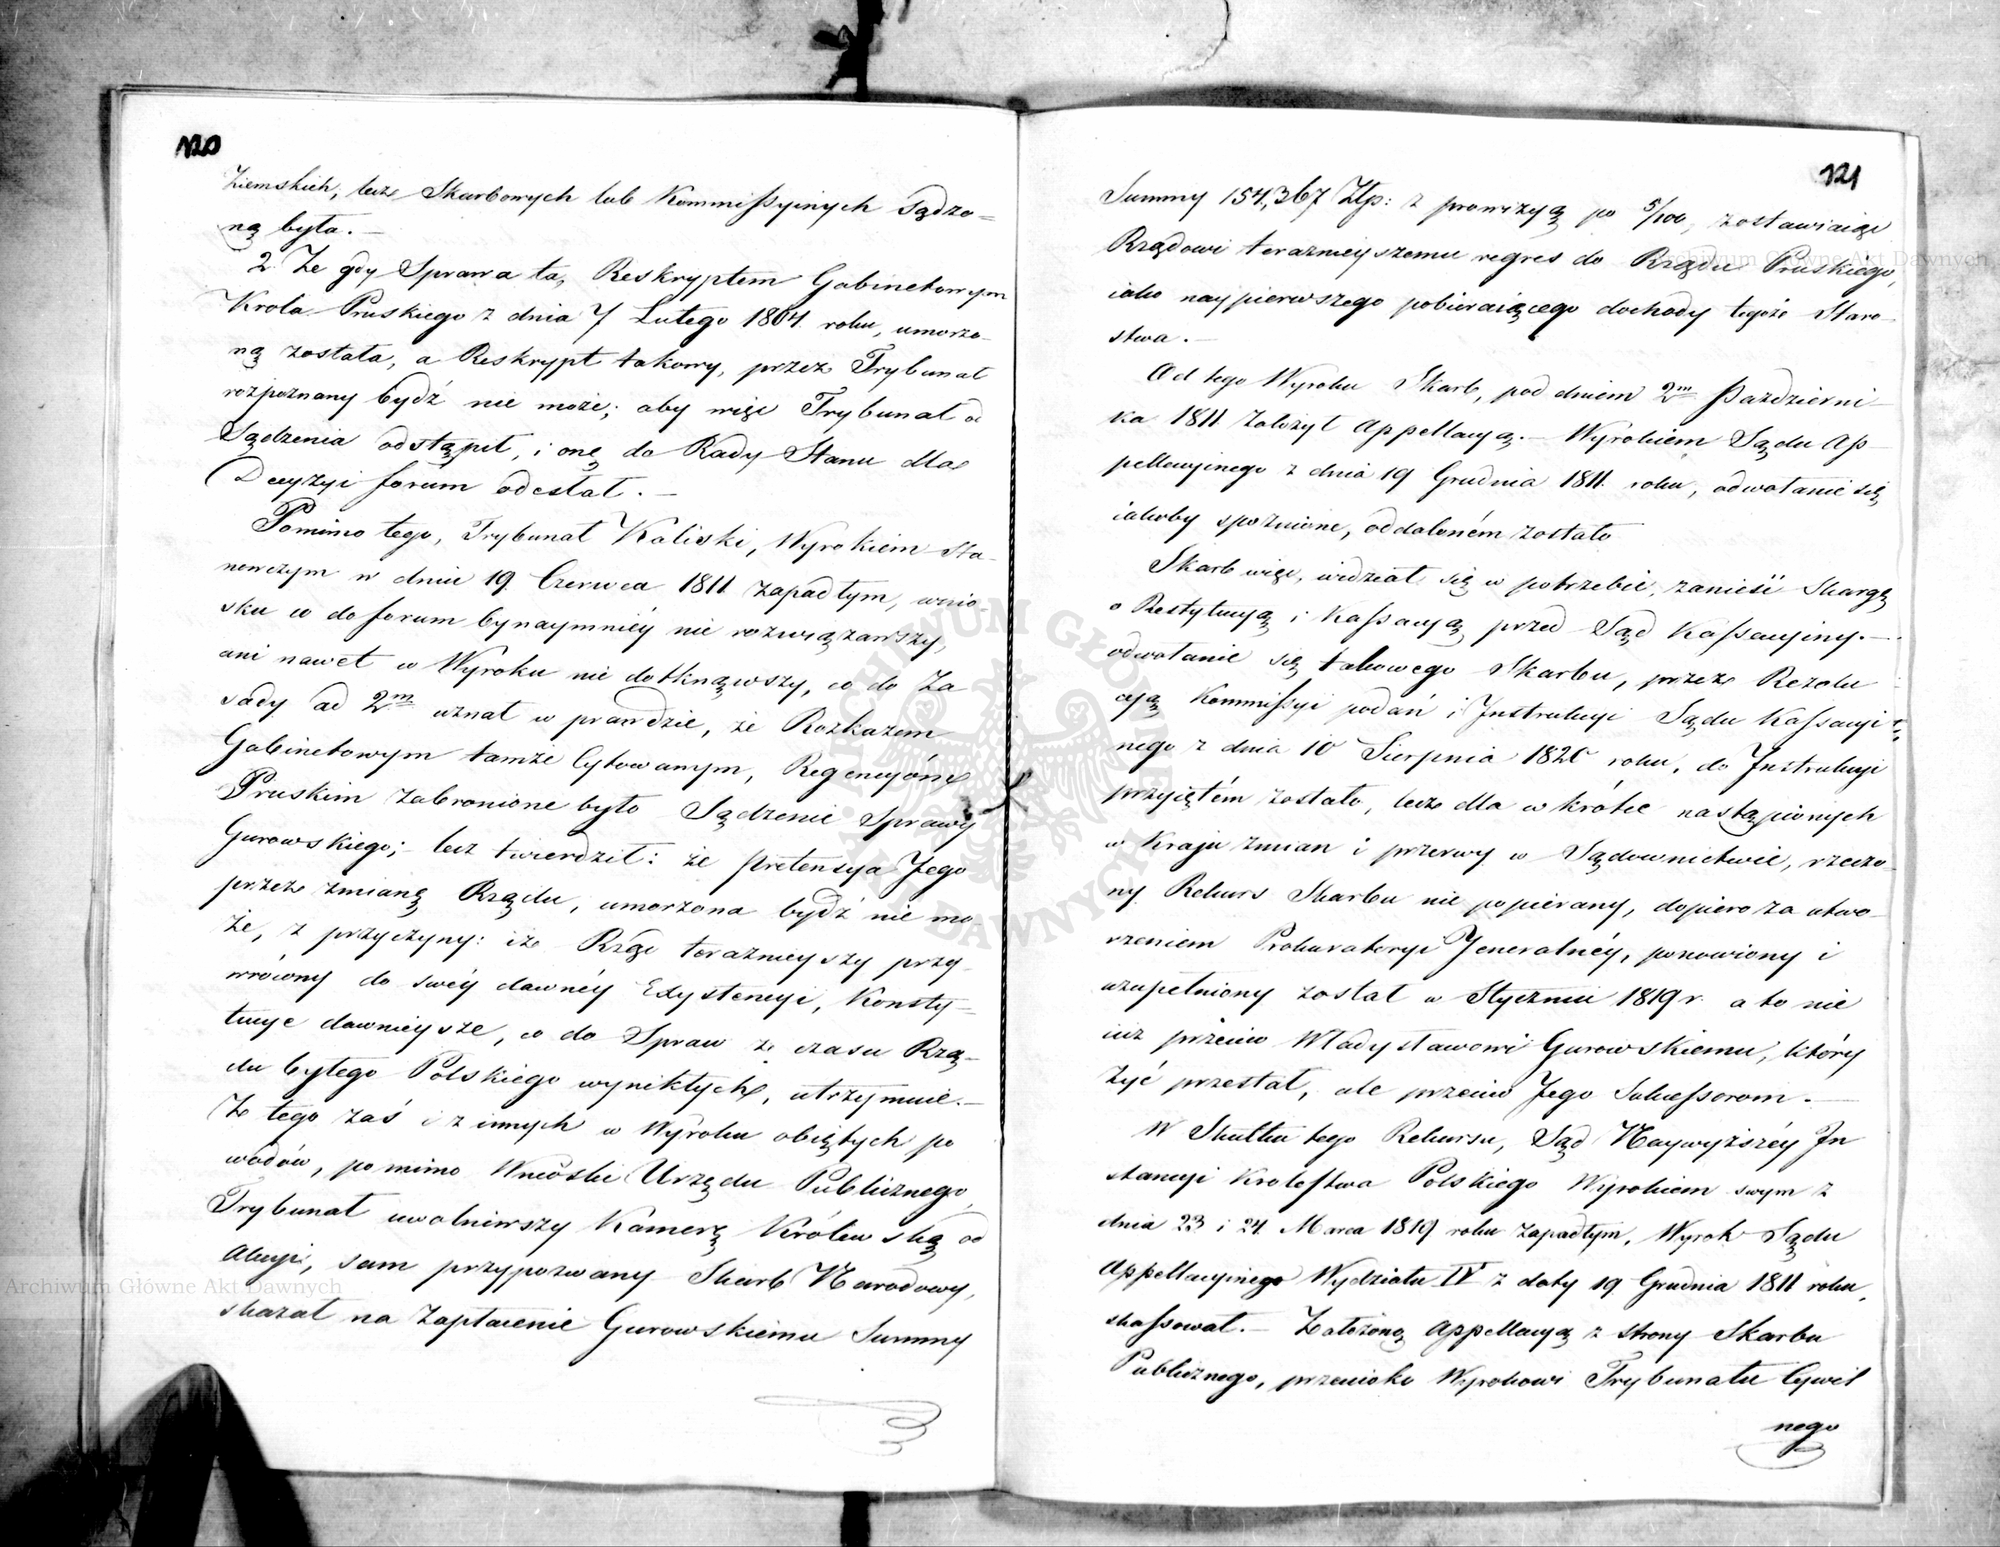 120
Ziemskich, lecz Skarbowych lub Kommissyinych sądzo=
ną była. —
2. Że gdy Sprawa ta, Reskryptem Gabinetowym
Krola Pruskiego z dnia 7 Lutego 1804. roku, umorzo-
ną została, a Reskrypt takowy, przez Trybunał
rozpoznany bydź nie może; aby więc Trybunał od
Sądzenia odstąpił, i onę do Rady Stanu dla
Decyzyi forum odesłał. —
Pomimo tego, Trybunał Kaliski, Wyrokiem sta-
nowczym w dniu 19. Czerwca 1811. zapadłym, wnio-
sku co do forum bynaymniéy nie rozwiązawszy,
ani nawet w Wyroku nie dotknąwszy, co do Za
sady ad 2m uznał w prawdzie, że Rozkazem
Gabinetowym tamże Cytowanym, Regencyóm
Pruskim zabronione było Sądzenie Sprawy
Gurowskiego; lecz twierdził: że pretensya Jego
przez zmianę Rządu, umorzona bydź nie mo
że, z przyczyny: iż Rząd teraznieyszy przy-
wrócony do swéy dawnéy Exystencyi, Konsty-
tucye dawnieysze, co do Spraw z czasu Rzą-
du byłego Polskiego wynikłych, utrzymuie. —
Z tego zaś i z innych w Wyroku obiętych po
wodów, pomimo Wniosku Urzędu Publicznego,
Trybunał uwolniwszy Kamerę Królewską od
Akcyi, sam przypozwany Skarb Narodowy,
skazał na Zapłacenie Gurowskiemu Summy
121
Summy 154,367 Złp: z prowizyą po 5/100, zostawiaiąc
Rządowi teraznieyszemu regres do Rządu Pruskiego,
iako naypierwszego pobieraiącego dochody tegoż Staro-
stwa. —
Od tego Wyroku Skarb, pod dniem 2m Październi-
ka 1811 założył Appellacyą. — Wyrokiem Sądu Ap-
pellacyinego z dnia 19 Grudnia 1811. roku, odwołanie się
iakoby spoznione, oddaloném zostało
Skarb więc, widział się w potrzebie, zanieść Skargę
o Restytucyą i Kassacyą przed Sąd Kassacyiny. —
odwołanie się takowego Skarbu, przez Rezolu
cyą Kommissyi podań i Instrukcyi Sądu Kassacyi
nego z dnia 10 Sierpnia 1820 roku, do Instrukcyi
przyiętém zostało, lecz dla w krótce nastąpionych
w Kraju zmian i przerwy w Sądownictwie, rzeczo-
ny Rekurs Skarbu nie popierany, dopiero za utwo-
rzeniem Prokuratoryi Jeneralnéy, ponowiony i
uzupełniony został w Styczniu 1819 r. a to nie
iuż przeciw Władysławowi Gurowskiemu, który
żyć przestał, ale przeciw Jego Sukcessorom. —
W Skutku tego Rekursu, Sąd Naywyższéy In
stancyi Krolestwa Polskiego Wyrokiem swym z
dnia 23 i 24. Marca 1819 roku zapadłym, Wyrok Sądu
Appellacyinego Wydziału IV z daty 19 Grudnia 1811 roku,
skassował. — Założoną Appellacyą z strony Skarbu
Publicznego, przeciwko Wyrokowi Trybunału Cywil
nego
Archiwum Główne Akt Dawnych
Archiwum Główne Akt Dawnych
ARCHIWUM GŁÓWNE AKT DAWNYCH